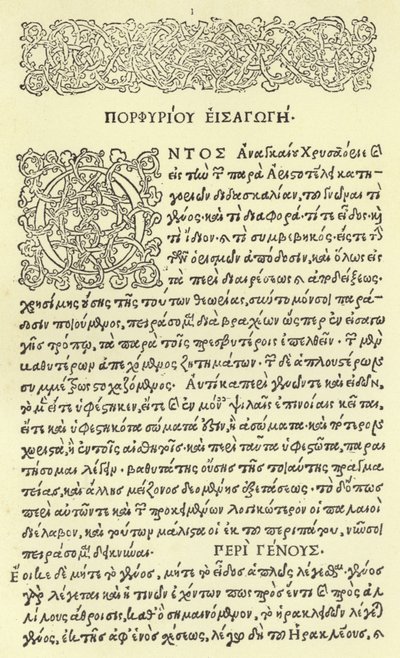 1
ΠΟΡΦΥΡΙΟΥ ΕἸΣΑΓΩΓΉ·
ΟΝΤΟΣ Ἀναγκαίου Χρυσαόριε καὶ
εἰς τὴν τῶν παρὰ Ἀριστοτέλει κατη
γοριῶν διδασκαλίαν, τοῦ γνῶναι τί
γένος, καὶ τί διαφορά· τί τε εἶδος, καὶ
τί ἴδιον· καὶ τί συμβεβηκός· εἴς τε τὴν
τῶν ὁρισμῶν ἀπόδοσιν, καὶ ὅλως εἰς
τὰ περὶ διαιρέσεως καὶ ἀποδείξεως
χρησίμης οὔσης τῆς τούτων θεωρίας, σύντομόν σοι παρά
δοσιν ποιούμενος, πειράσομαι διὰ βραχέων ὥσπερ ἐν εἰσαγω
γῆς τρόπῳ, τὰ παρὰ τοῖς πρεσβυτέροις ἐπελθεῖν· τῶν μὲν
βαθυτέρων ἀπεχόμενος ζητημάτων· τῶν δὲ ἁπλουστέρων
συμμέτρως στοχαζόμενος· Αὐτίκα περὶ γενῶν τε καὶ εἰδῶν,
τὸ μὲν εἴτε ὑφέστηκεν, εἴτε καὶ ἐν μόναις ψιλαῖς ἐπινοίαις κεῖται,
εἴτε καὶ ὑφεστηκότα σώματά ἐστιν, ἢ ἀσώματα· καὶ πότερον
χωριστὰ, ἢ ἐν τοῖς αἰσθητοῖς· καὶ περὶ ταῦτα ὑφεστῶτα, παραι
τήσομαι λέγειν· βαθυτάτης οὔσης τῆς τοιαύτης πραγμα
τείας, καὶ ἄλλης μείζονος δεομένης ἐξετάσεως· τὸ δ' ὅπως
περὶ αὐτῶν τε καὶ τῶν προκειμένων λογικώτερον οἱ παλαιοὶ
διέλαβον, καὶ τούτων μάλιστα οἱ ἐκ τοῦ περιπάτου, νῦν σοι
πειράσομαι δεικνύναι· ΠΕΡΙ ΓΕΝΟΥΣ·
Ἔοικε δὲ μήτε τὸ γένος, μήτε τὸ εἶδος ἁπλῶς λέγεσθαι· γένος
γὰρ λέγεται καὶ ἡ τινῶν ἐχόντων πως πρὸς ἕν τι καὶ πρὸς ἀλ
λήλους ἄθροισις, καθ' ὃ σημαινόμενον, τὸ ἡρακλειδῶν λέγεται
γένος, ἐκ τῆς ἀφ' ἑνὸς σχέσεως, λέγω δὴ τοῦ Ἡρακλέους, καὶ